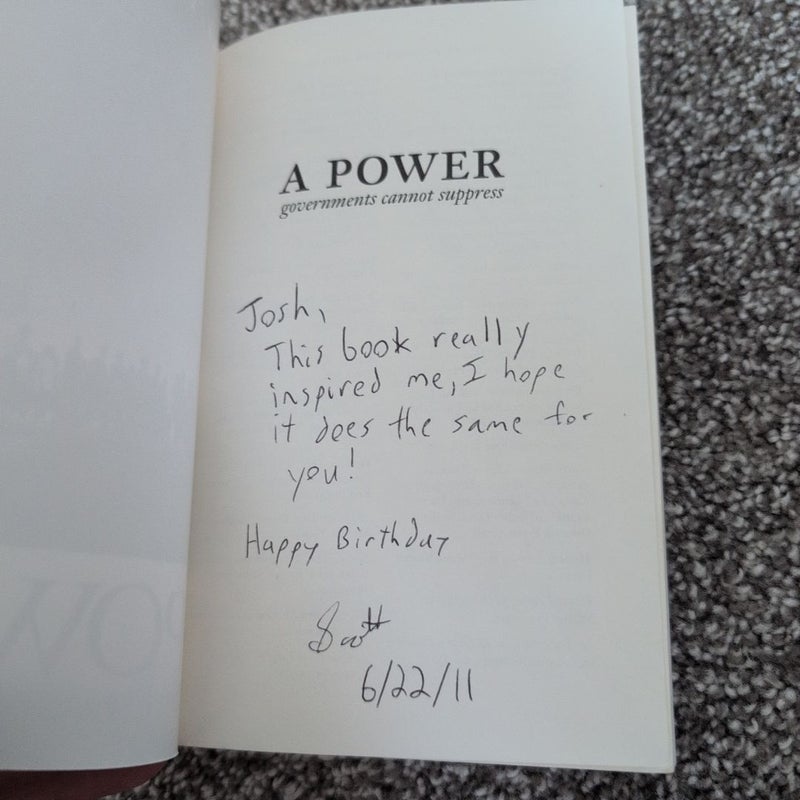 A POWER
governments cannot suppress
Josh,
This book really
inspired me, I hope
it does the same for
you!
Happy Birthday
Scott
6/22/11